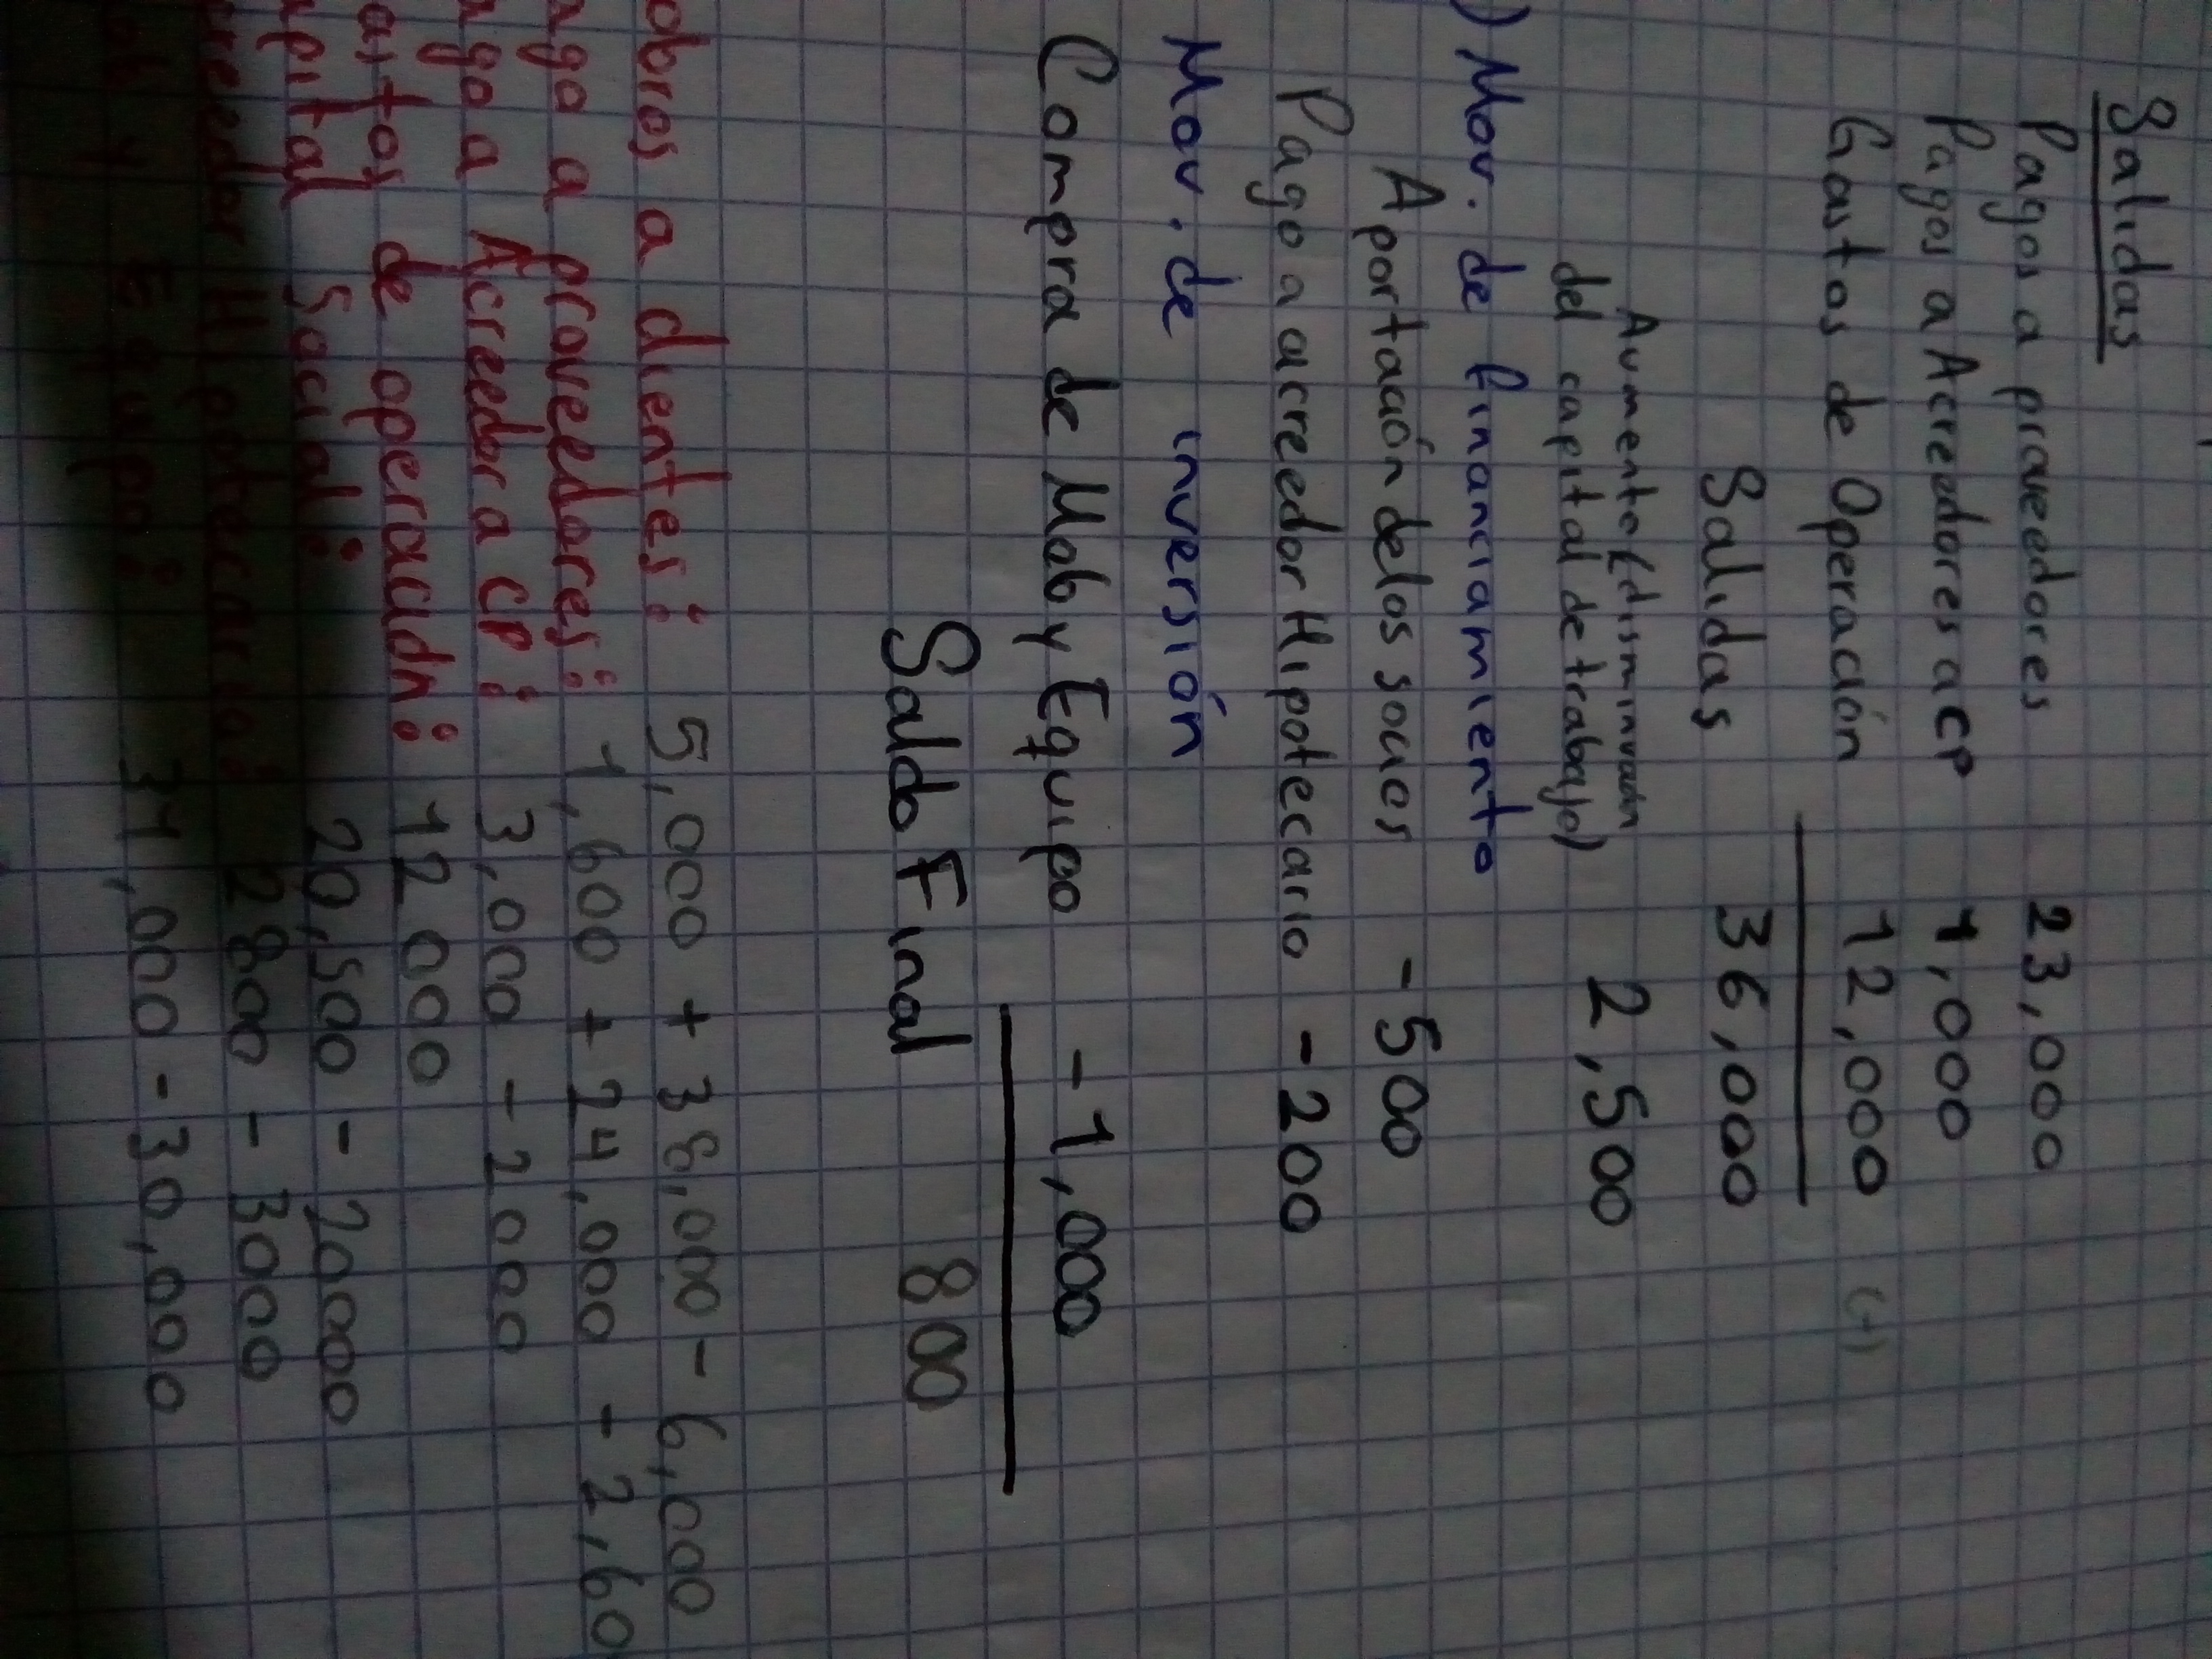 Salidas
Pagos a proveedores 23,000
Pagos a Acreedores a CP 1,000
Gastos de Operación 12,000 (-)
Salidas 36,000
Aumento (disminución
del capital de trabajo) 2,500
) Mov. de financiamiento
Aportación de los socios -500
Pago a acreedor Hipotecario -200
Mov. de inversión
Compra de Mob y Equipo -1,000
Saldo Final 800
obros a clientes: 5,000 + 38,000 - 6,000
ago a proveedores: 1,600 + 24,000 - 2,60
ago a Acreedor a CP: 3,000 - 2000
astos de operación: 12 000
apital Social: 20,500 - 20000
reedor Hipotecario: 2800 - 3000
ob y Equipo: 31,000 - 30,000